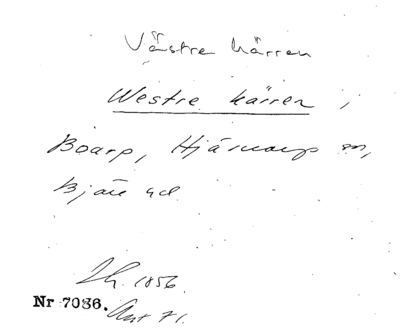 Västre kärren
Westre kärren,
Boarp, Hjärnarp sn,
Bjäre hd
Lh. 1856.
Nr 7086. Avt 71.